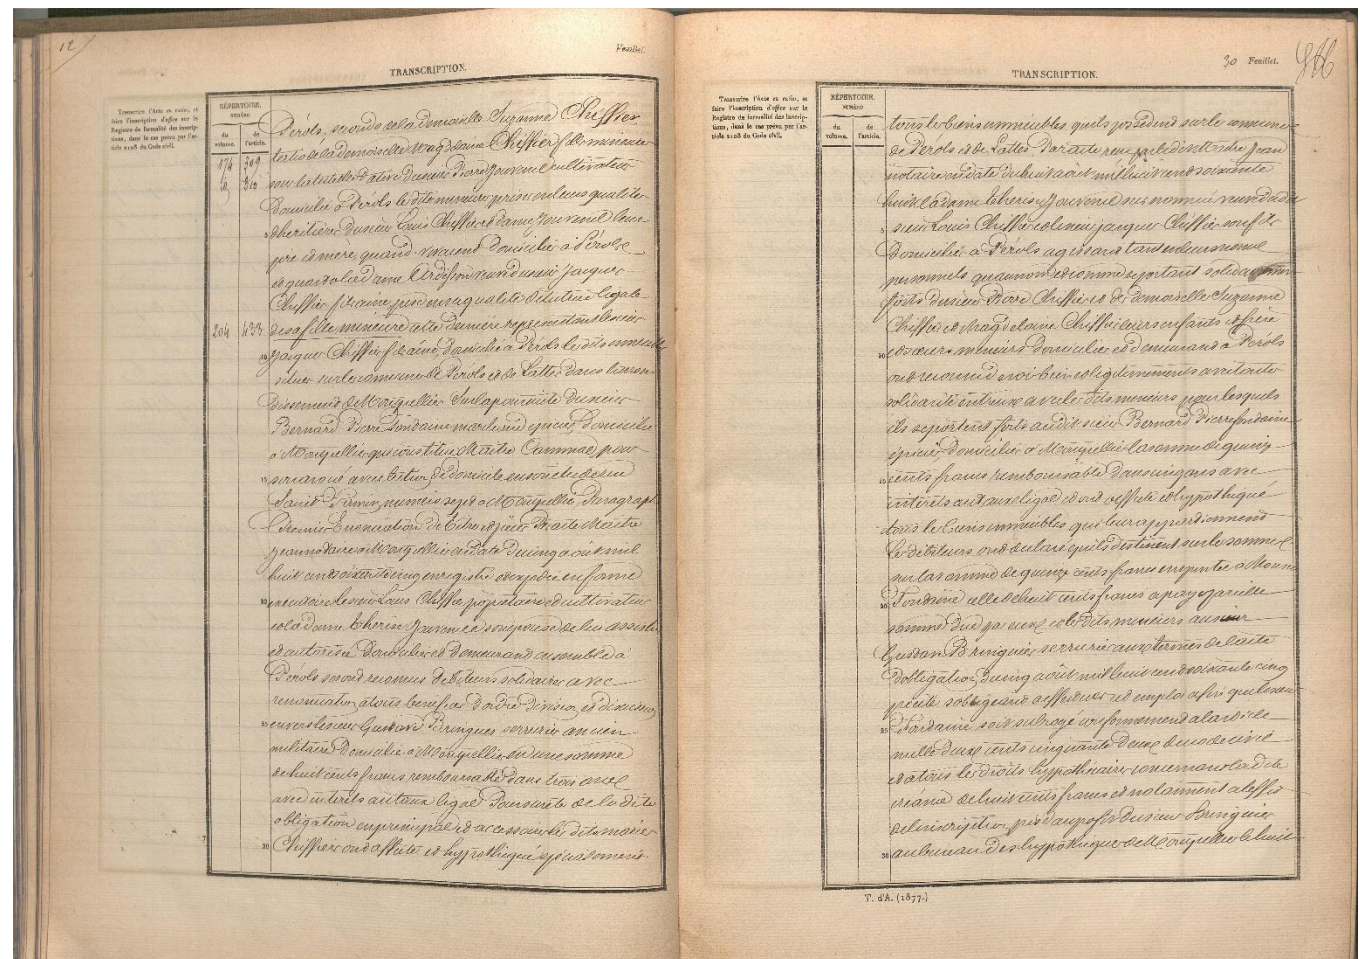 12
Feuillet.
TRANSCRIPTION.
Transcrire l'Acte en entier, et
faire l'inscription d'office sur le
Registre de formalité des inscrip-
tions, dans le cas prévu par l'ar-
ticle 2108 du Code civil.
RÉPERTOIRE.
numéro
du volume.
de l'article.
174 309
310
204 433
Pérols, seconde de la demoiselle Suzanne Chiffier
de la demoiselle Magdelaine Chiffier mineurs
sous la tutelle dative du sieur Pierre Jouvenel cultivateur
domicilié à Pérols les dits mineurs pris en leurs qualités
d'héritiers du sieur Louis Chiffier et dame Jouvenel leurs
père et mère quand vivaient domiciliés à Pérols
et quarto la dame veuve du sieur Jacques
Chiffier fils ainé prise en sa qualité de tutrice légale
de sa fille mineure cette dernière représentant le sieur
Jacques Chiffier fils ainé domicilié à Pérols les dits immeubles
situés sur les communes de Pérols et de Lattes dans l'arron
dissement de Montpellier Sur la poursuite du sieur
Bernard Pierre Fondaine marchand épicier domicilié
à Montpellier qui constitue Maître pour
son avoué avec élection de domicile en son étude rue
Saint Firmin, numéro sept à Montpellier Paragraphe
Premier Enonciation du Titre Par acte Maître
Jean notaire à Montpellier en date du cinq août mil
huit cent soixante cinq enregistré et expédié en forme
exécutoire le sieur Louis Chiffier propriétaire et cultivateur
et la dame Thérèse Jouvenel son épouse de lui assistée
et autorisée domiciliés et demeurant ensemble à
Pérols se sont reconnus débiteurs solidaires avec
renonciation à tous bénéfices d'ordre division et discussion
envers le sieur Gustave Bringuier serrurier ancien
militaire domicilié à Montpellier en une somme
de huit cents francs remboursable dans trois ans
avec intérêts au taux légal Pour sureté de la dite
obligation en principal et accessoires les dits mariés
Chiffier ont affecté et hypothéqué
30 Feuillet.
TRANSCRIPTION.
Transcrire l'Acte en entier, et
faire l'inscription d'office sur le
Registre de formalité des inscrip-
tions, dans le cas prévu par l'ar-
ticle 2108 du Code civil.
RÉPERTOIRE.
numéro
du volume.
de l'article.
tous les biens immeubles qu'ils possèdent sur les communes
de Pérols et de Lattes Par acte reçu par le dit Maître Jean
notaire en date du huit août mil huit cent soixante
huit la dame Thérèse Jouvenel susnommée veuve du dit
sieur Louis Chiffier et le sieur Jacques Chiffier son fils
domiciliés à Pérols agissant tant en leurs noms
personnels qu'au nom et comme se portant solidairement
forts du sieur Pierre Chiffier et des demoiselle Suzanne
Chiffier et Magdelaine Chiffier leurs enfants et frère
et soeurs mineurs domiciliés et demeurant à Pérols
ont reconnu devoir bien et légitimement avec toute
solidarité entre eux avec les dits mineurs pour lesquels
ils se portent forts au dit sieur Bernard Pierre fondaine
épicier domicilié à Montpellier la somme de quinze
cents francs remboursable dans cinq ans avec
intérêts au taux légal et ont affecté et hypothéqué
tous les biens immeubles qui leur appartiennent
Les débiteurs ont déclaré qu'ils destinent sur la somme
sur la somme de quinze cents francs empruntée à Monsieur
Fondaine celle de huit cents francs à payer pareille
somme due par eux et les dits mineurs au sieur
Gustave Bringuier serrurier aux termes de l'acte
d'obligation du cinq août mil huit cent soixante cinq
précité s'obligeant à effectuer cet emploi afin que le sieur
Fondaine soit subrogé conformément à l'article
mille deux cents cinquante deux du code civil
et à tous les droits hypothécaires concernant la dite
créance de huit cents francs et notamment à l'effet
de l'inscription prise au profit du sieur Bringuier
au bureau des hypothèques de Montpellier le huit
T. d'A. (1877.)